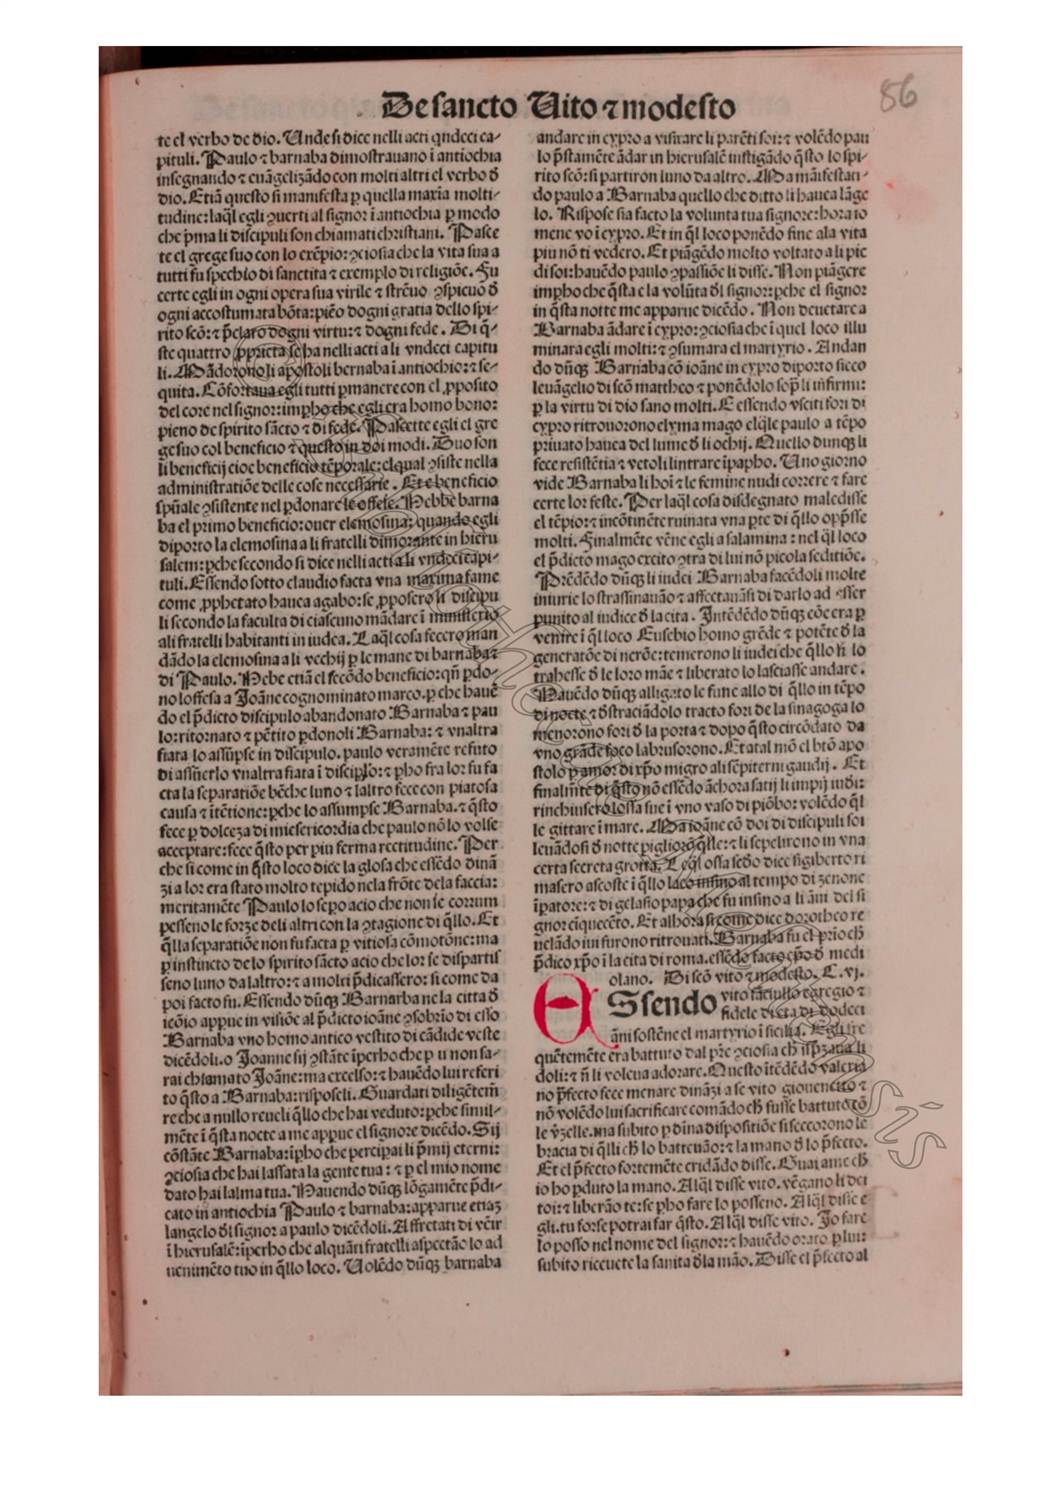 De sancto Uito ⁊ modesto
86
te el verbo de dio. Unde si dice nelli acti q̃ndeci ca-
pituli. Paulo ⁊ barnaba dimostrauano ĩ antiochia
insegnando ⁊ euãgelizãdo con molti altri el verbo d̃
dio. Etiã questo si manifesta ꝑ quella maxĩa molti-
tudine: laq̃l egli ꝯuerti al signor ĩ antiochia ꝑ modo
che p̃ma li discipuli son chiamati christiani. Pasce
te el grege suo con lo exẽpio: ꝯciosia che la vita sua a
tutti fu spechio di sanctita ⁊ exemplo di religiõe. Fu
certe egli in ogni opera sua virile ⁊ strẽuo ꝯspicuo d̃
ogni accostumata bõta: piẽo dogni gratia dello spi-
rito scõ: ⁊ p̃claro dogni virtu: ⁊ dogni fede. Di q̃-
ste quattro ꝓprieta se ha nelli acti a li vndeci capitu
li. Mãdorono li apostoli bernaba ĩ antiochio: ⁊ se-
quita. Cõfortaua egli tutti ꝑmanere con el ꝓposito
del core nel signor: imꝑho che egli era homo bono:
pieno de spirito sãcto ⁊ di fede. Pascette egli el gre
ge suo col beneficio ⁊ questo in doi modi. Duo son
li beneficij cioe beneficio tẽporale: elqual ꝯsiste nella
administratiõe delle cose necessarie. Et e beneficio
spũale ꝯsistente nel ꝑdonare le offese. Hebbe barna
ba el primo beneficio: ouer elemosina: quando egli
diporto la elemosina a li fratelli dimorante in hieru
salem: ꝑche secondo si dice nelli acti a li vndeci capi-
tuli. Essendo sotto claudio facta vna maxima fame
come ꝓphetato hauea agabo: se ꝓposero li discipu
li secondo la faculta di ciascuno mãdare ĩ ministerio
ali fratelli habitanti in iudea. Laq̃l cosa fecero man
dãdo la elemosina a li vechij ꝑ le mane di barnaba ⁊
di Paulo. Hebe etiã el secõdo beneficio: qñ ꝑdo-
no loffesa a Joãne cognominato marco. ꝑ che hauẽ
do el p̃dicto discipulo abandonato Barnaba ⁊ pau
lo: ritornato ⁊ pẽtito ꝑdonoli Barnaba: ⁊ vnaltra
fiata lo assũpse in discipulo. paulo veramẽte refuto
di assũerlo vnaltra fiata ĩ discipl̃o: ⁊ ꝑho fra lor fu fa
cta la separatiõe bẽche luno ⁊ laltro fece con piatosa
causa ⁊ ĩtẽtione: ꝑche lo assumpse Barnaba. ⁊ q̃sto
fece ꝑ dolceza di misericordia che paulo nõ lo volse
acceptare: fece q̃sto per piu ferma rectitudine. Per
che si come in q̃sto loco dice la glosa che essẽdo dinã
zi a lor era stato molto tepido nela frõte dela faccia:
meritamẽte Paulo lo sepo acio che non se corrum
pesseno le forze deli altri con la ꝯtagione di q̃llo. Et
q̃lla separatiõe non fu facta ꝑ vitiosa cõmotõne: ma
ꝑ instincto de lo spirito sãcto acio che lor se dispartis
seno luno da laltro: ⁊ a molti p̃dicassero: si come da
poi facto fu. Essendo dũq̃ Barnarba ne la citta d̃
icoñio appue in visiõe al p̃dicto ioãne ꝯsobrĩo di esso
Barnaba vno homo antico vestito di cãdide veste
dicẽdoli. o Joanne sij ꝯstãte ĩperho che ꝑ u non sa-
rai chiamato Joãne: ma excelso: ⁊ hauẽdo lui referi
to q̃sto a Barnaba: risposeli. Guardati diligẽtem̃
re che a nullo reueli q̃llo che hai veduto: ꝑche simil-
mẽte ĩ q̃sta nocte a me appue el signore dicẽdo. Sij
cõstãte Barnaba: ĩꝑho che percipai li p̃mij eterni:
ꝯciosia che hai lassata la gente tua: ⁊ ꝑ el mio nome
dato hai lalma tua. Hauendo dũq̃ lõgamẽte p̃di-
cato in antiochia Paulo ⁊ barnaba: apparue etiaʒ
langelo d̃l signor a paulo dicẽdoli. Affretati di vẽir
ĩ hierusalẽ: ĩperho che alquãti fratelli aspectão lo ad
uenimẽto tuo in q̃llo loco. Uolẽdo dũq̃ barnaba
andare in cypro a visitare li parẽti soi: ⁊ volẽdo pau
lo p̃stamẽte ãdar in hierusalẽ instigãdo q̃sto lo spi-
rito scõ: si partiron luno da altro. Ma manifestan-
do paulo a Barnaba quello che ditto li hauea lãge
lo. Rispose sia facto la volunta tua signore: hora io
mene vo ĩ cypro. Et in q̃l loco ponẽdo fine ala vita
piu nõ ti vedero. Et piãgẽdo molto voltato a li pie
di soi: hauẽdo paulo ꝯpassiõe li disse. Non piãgere
imꝑho che q̃sta e la volũta d̃l signor: ꝑche el signor
in q̃sta notte me apparue dicẽdo. Non deuetare a
Barnaba ãdare ĩ cypro: ꝯciosia che ĩ quel loco illu
minara egli molti: ⁊ ꝯsumara el martyrio. Andan
do dũq̃ Barnaba cõ ioãne in cypro diporto sicco
leuãgelio di scõ mattheo ⁊ ponẽdolo sop̃ li infirmi:
ꝑ la virtu di dio sano molti. E essendo vsciti fori di
cypro ritrouorono elyma mago elq̃le paulo a tẽpo
priuato hauea del lume d̃ li ochij. Quello dunq̃ li
fece resistẽtia ⁊ vetoli lintrare ĩ papho. Uno giorno
vide Barnaba li hoĩ ⁊ le femine nudi correre ⁊ fare
certe lor feste. Per laq̃l cosa disdegnato maledisse
el tẽpio: ⁊ incõtinẽte ruinata vna ꝑte di q̃llo opp̃sse
molti. Finalmẽte vẽne egli a salamina: nel q̃l loco
el p̃dicto mago excito ꝯtra di lui nõ picola seditiõe.
Prẽdẽdo dũq̃ li iudei Barnaba facẽdoli molte
iniurie lo strassinauão ⁊ affectauãsi di darlo ad esser
punito al iudice d̃ la cita. Intẽdẽdo dũq̃ cõe era ꝑ
venire ĩ q̃l loco Eusebio homo grẽde ⁊ potẽte d̃ la
generatõe di nerõe: temerono li iudei che q̃llo nõ lo
trahesse d̃ le loro mãe ⁊ liberato lo lasciasse andare.
Hauẽdo dũq̃ alligato le fune allo di q̃llo in tẽpo
di nocte ⁊ d̃straciãdolo tracto fori de la sinagoga lo
menorono fori d̃ la porta ⁊ dopo q̃sto circõdato da
vno grãde foco labrusorono. Et atal mõ el btõ apo
stolo ꝑ amor di xp̃o migro ali sẽpiterni gaudij. Et
finalm̃te di q̃sto nõ essẽdo ãchora satij li impij iudi:
rinchiusero lossa sue ĩ vno vaso di piõbo: volẽdo q̃l
le gittare ĩ mare. Ma ioãne cõ doi di discipuli soi
leuãdosi d̃ notte pigliorõ q̃lle: ⁊ li sepelirono in vna
certa secreta grotta. Leq̃l ossa secõdo dice sigiberto ri
masero ascoste ĩ q̃llo laco insino al tempo di zenone
ĩpatore: ⁊ di gelasio papa che fu insino a li ãni del si
gnor cĩquecẽto. Et alhora si come dice dorotheo re
uelãdo iui furono ritrouati. Barnaba fu el p̃rio ch̃
p̃dico xp̃o ĩ la cita di roma. essẽdo facto ep̃o d̃ medi
olano. Di scõ vito ⁊ modesto. C. vj.
ESsendo vito fãciullo egregio ⁊
fidele di eta di dodeci
ãni sostẽne el martyrio ĩ sicilia. Egli fre
quẽtemẽte era battuto dal pr̃e ꝯciosia ch̃ isp̃zaua li
doli: ⁊ ñ li voleua adorare. Questo itẽdẽdo valeria
no p̃fecto fece menare dinãzi a se vito giouencito ⁊
nõ volẽdo lui sacrificare comãdo ch̃ fusse battuto cõ
le v̾zelle. ma subito ꝑ diĩna dispositiõe si seccorono le
bracia di q̃lli ch̃ lo batteuão: ⁊ la mano d̃ lo p̃fecto.
Et el p̃fecto fortemẽte cridãdo disse. Guai a me ch̃
io ho ꝑduto la mano. Alq̃l disse vito. vẽgano li dei
toi: ⁊ liberão te: se ꝑho fare lo posseno. Alq̃l disse e
gli. tu forse potrai far q̃sto. Alq̃l disse vito. Jo fare
lo posso nel nome del signor: ⁊ hauẽdo orato ꝑ lui:
subito riceuete la sanita d̃la mão. Disse el p̃fecto al